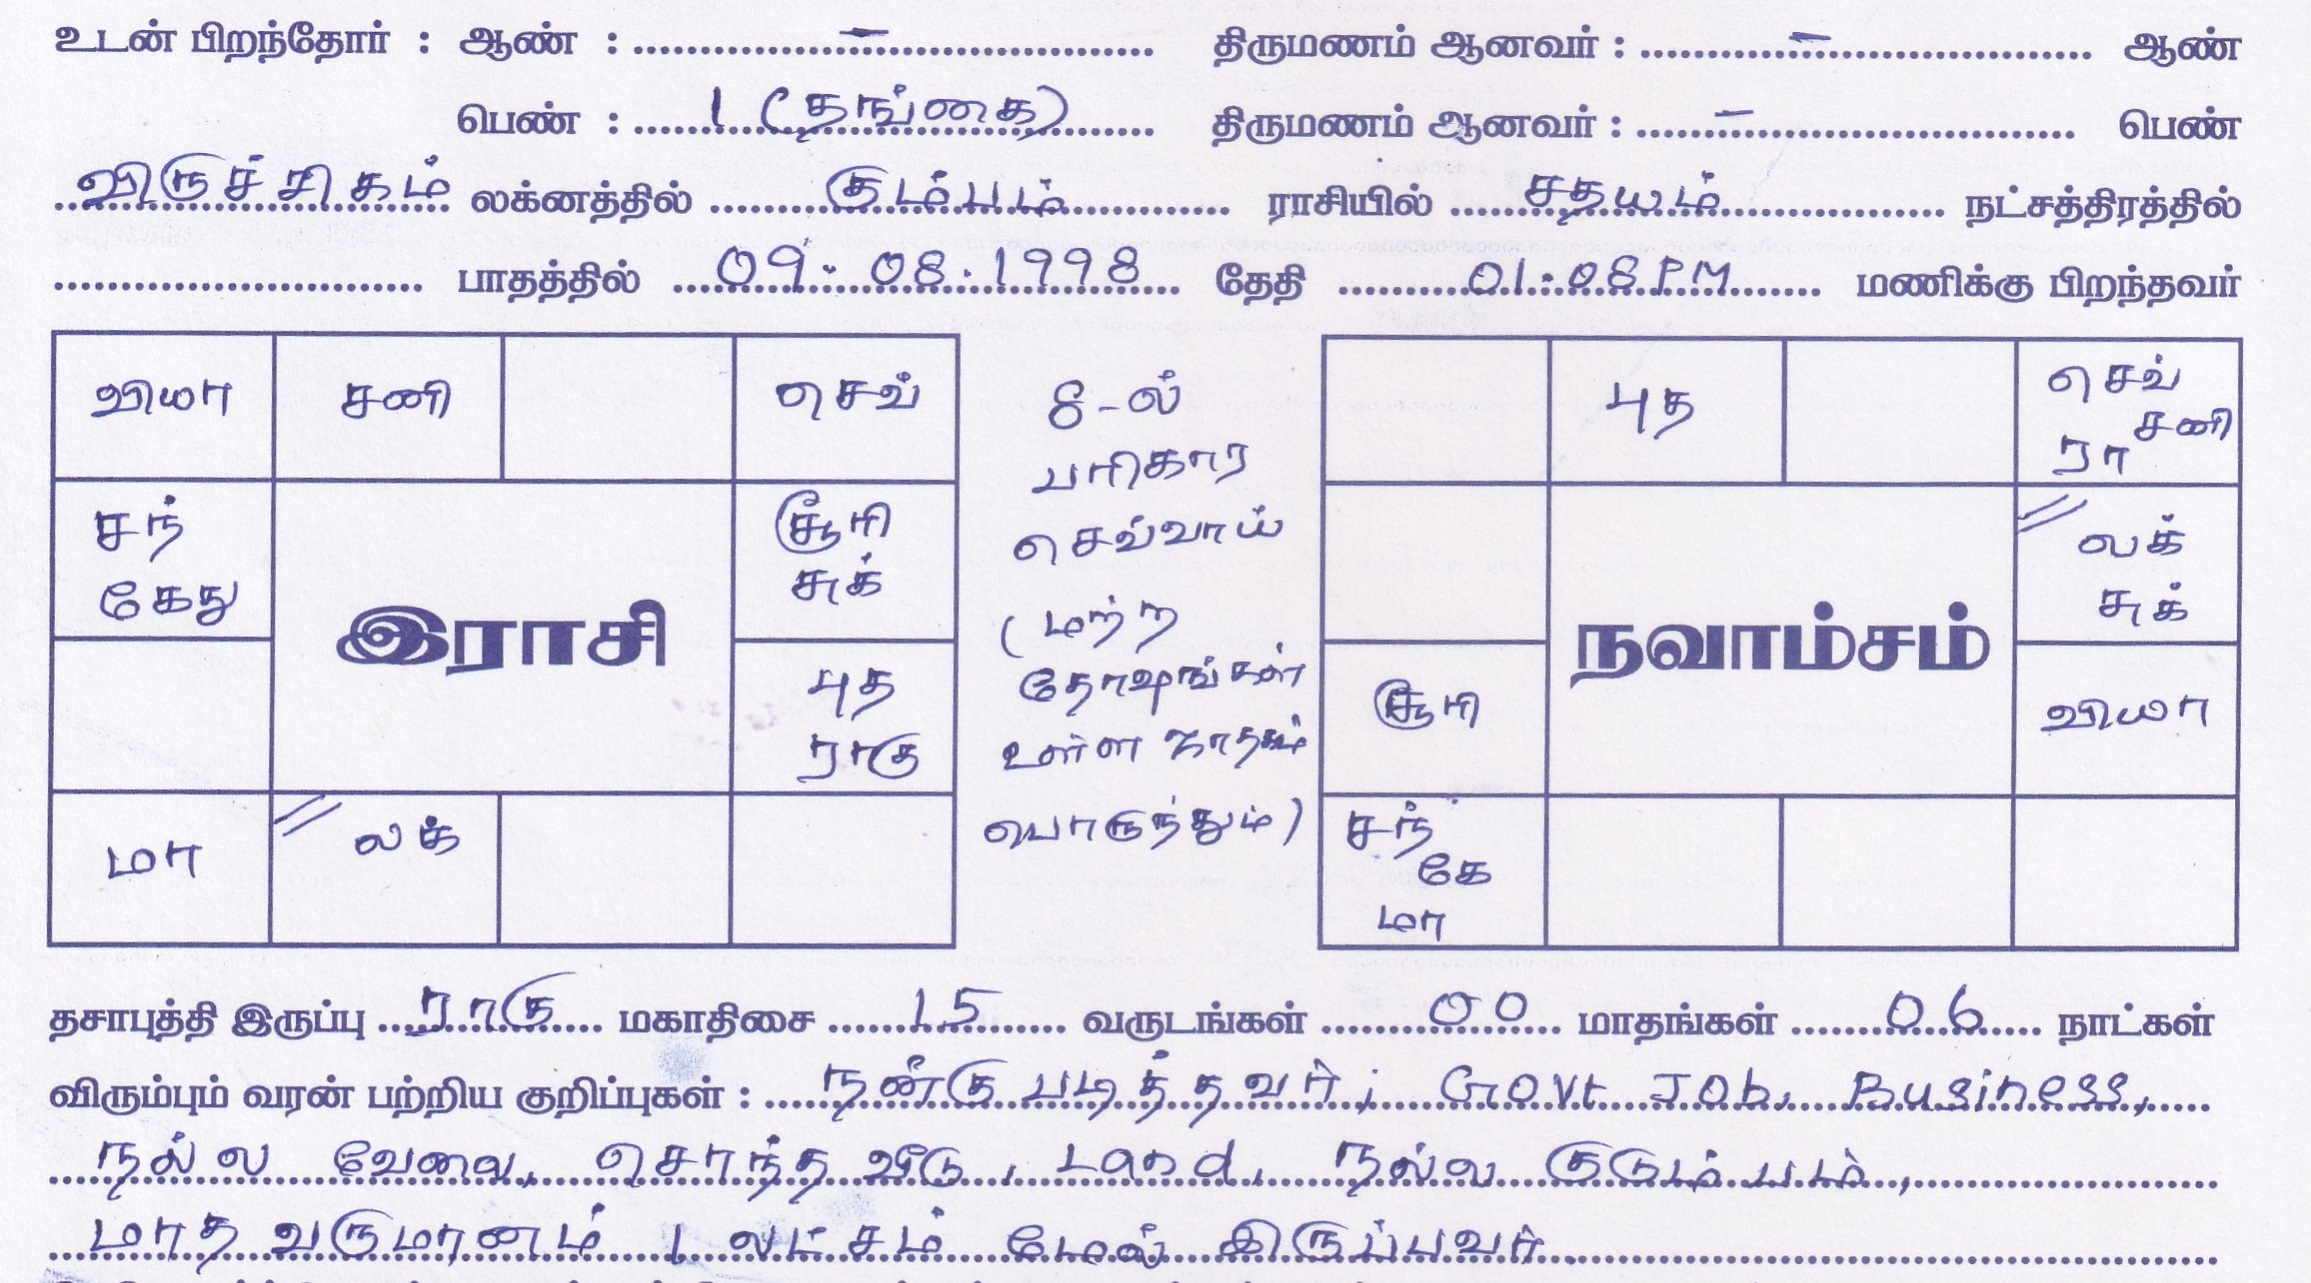 உடன் பிறந்தோர் : ஆண் : – திருமணம் ஆனவர் : – ஆண்
பெண் : 1 (தங்கை) திருமணம் ஆனவர் : – பெண்
விருச்சிகம் லக்னத்தில் கும்பம் ராசியில் சதயம் நட்சத்திரத்தில்
பாதத்தில் 09.08.1998 தேதி 01.08 PM மணிக்கு பிறந்தவர்
வியா சனி செவ்
சந் கேது
சூரி சுக்
இராசி
புத ராகு
மா // லக்
8-ல்
பரிகார
செவ்வாய்
(மற்ற
தோஷங்கள்
உள்ள ஜாதகம்
பொருந்தும்)
புத
செவ் சனி ரா
// லக் சுக்
நவாம்சம்
சூரி வியா
சந் கே மா
தசாபுத்தி இருப்பு ராகு மகாதிசை 15 வருடங்கள் 00 மாதங்கள் 06 நாட்கள்
விரும்பும் வரன் பற்றிய குறிப்புகள் : நன்கு படித்தவர், Govt Job, Business,
நல்ல வேலை, சொந்த வீடு, Land, நல்ல குடும்பம்,
மாத வருமானம் 1 லட்சம் மேல் இருப்பவர்.